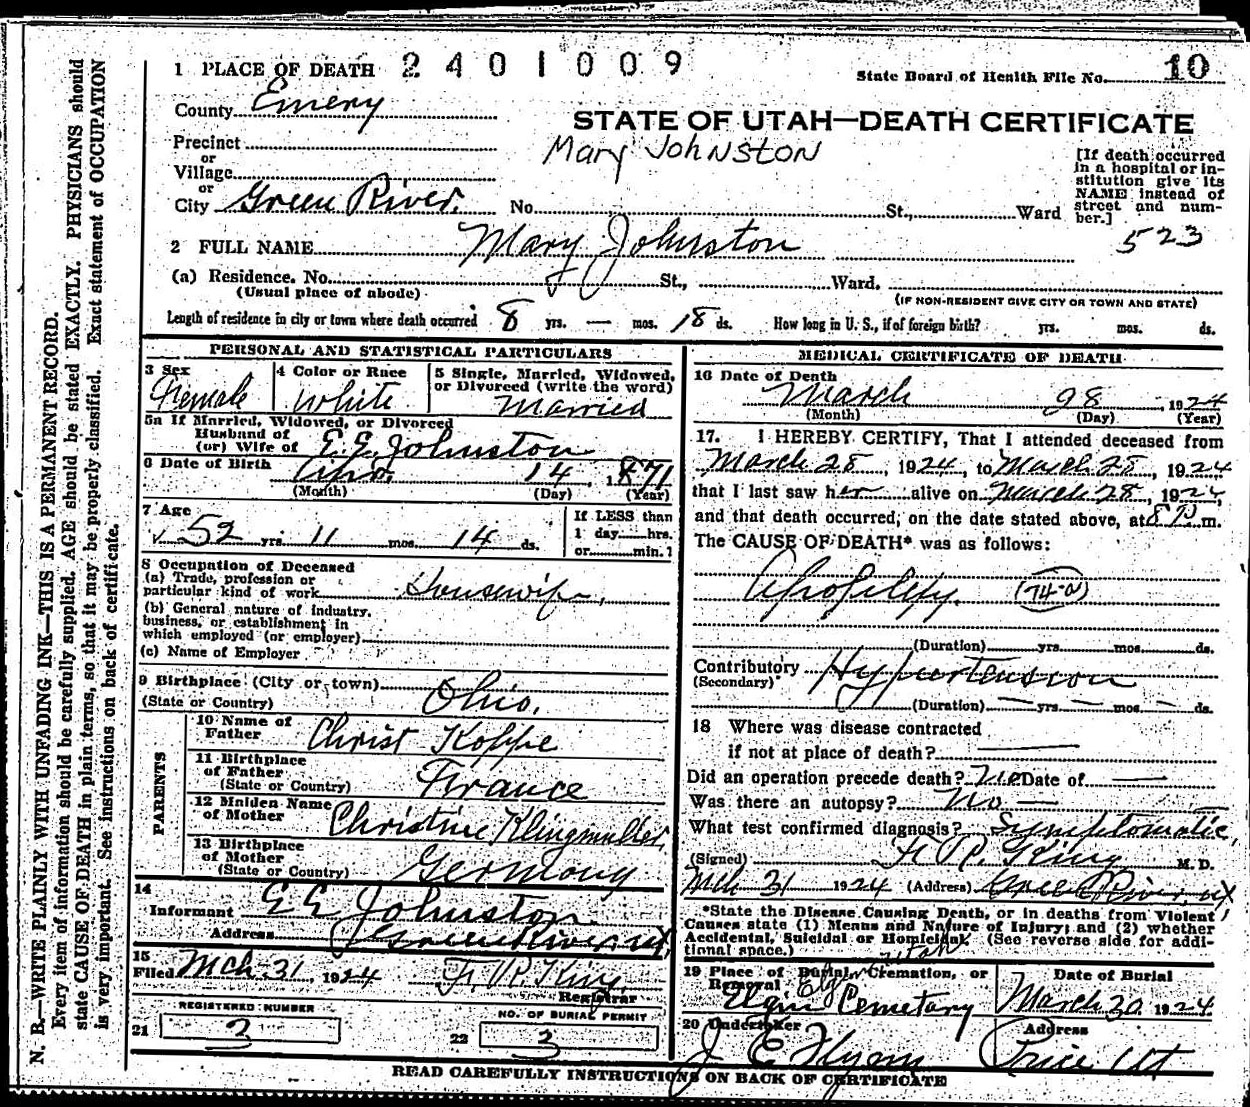 1 PLACE OF DEATH 2401009
State Board of Health File No. 10
County Emery
STATE OF UTAH—DEATH CERTIFICATE
Mary Johnston
Precinct
or
Village
or
City Green River. No. St., Ward
[If death occurred
in a hospital or in-
stitution give its
NAME instead of
street and num-
ber.]
523
2 FULL NAME Mary Johnston
(a) Residence. No. St., Ward.
(Usual place of abode)
(IF NON-RESIDENT GIVE CITY OR TOWN AND STATE)
Length of residence in city or town where death occurred 8 yrs. — mos. 18 ds. How long in U. S., if of foreign birth? yrs. mos. ds.
PERSONAL AND STATISTICAL PARTICULARS
3 Sex
Female
4 Color or Race
White
5 Single, Married, Widowed,
or Divorced (write the word)
Married
5a If Married, Widowed, or Divorced
Husband of
(or) Wife of E. E. Johnston
6 Date of Birth 14, 1871
(Month) (Day) (Year)
7 Age
52 yrs. 11 mos. 14 ds.
If LESS than
1 day hrs.
or min.?
8 Occupation of Deceased
(a) Trade, profession or
particular kind of work Housewife,
(b) General nature of industry,
business, or establishment in
which employed (or employer)
(c) Name of Employer
9 Birthplace (City or town)
(State or Country) Ohio.
PARENTS
10 Name of
Father Christ Koppe
11 Birthplace
of Father
(State or Country) France
12 Maiden Name
of Mother Christine Klingmuller,
13 Birthplace
of Mother
(State or Country) Germany
14
Informant E E Johnston
Address Green River, Ut,
15
Filed Mch 31 1924 F. R. King,
Registrar
REGISTERED NUMBER
21 3
NO. OF BURIAL PERMIT
22 3
MEDICAL CERTIFICATE OF DEATH
16 Date of Death
March 28, 1924
(Month) (Day) (Year)
17. I HEREBY CERTIFY, That I attended deceased from
March 28, 1924, to March 28, 1924
that I last saw her alive on March 28, 1924,
and that death occurred, on the date stated above, at 8 P. m.
The CAUSE OF DEATH* was as follows:
(74-a)
(Duration) yrs. mos. ds.
Contributory
(Secondary) Hypertension
(Duration) — yrs. — mos. — ds.
18 Where was disease contracted
if not at place of death? ——
Did an operation precede death? No Date of —
Was there an autopsy? No —
What test confirmed diagnosis? Symptomatic,
(Signed) F. R. King M. D.
Mch 31 1924 (Address) Green River, Ut
*State the Disease Causing Death, or in deaths from Violent
Causes state (1) Means and Nature of Injury; and (2) whether
Accidental, Suicidal or Homicidal. (See reverse side for addi-
tional space.) Utah
19 Place of Burial, Cremation, or
Removal
Elgin Cemetary
Date of Burial
March 30, 1924
20 Undertaker
J. E. Flynn
Address
Price Ut
READ CAREFULLY INSTRUCTIONS ON BACK OF CERTIFICATE
N. B.—WRITE PLAINLY WITH UNFADING INK—THIS IS A PERMANENT RECORD.
Every item of information should be carefully supplied. AGE should be stated EXACTLY. PHYSICIANS should
state CAUSE OF DEATH in plain terms, so that it may be properly classified. Exact statement of OCCUPATION
is very important. See instructions on back of certificate.